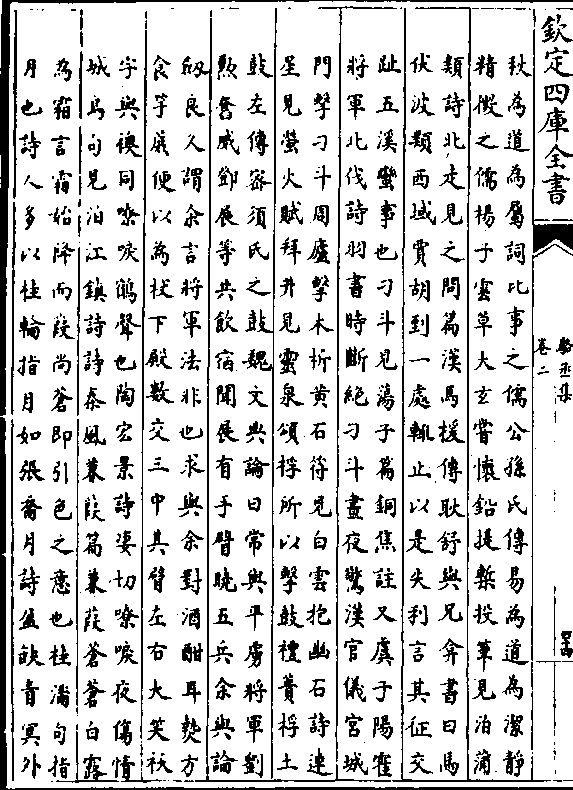 欽定四庫全書
駱丞集
卷二
秋為道為屬詞比事之儒公孫氏傳易為道為潔靜
精微之儒楊子雲草大玄嘗懷鉛提槧投筆見泊蒲
類詩北走見之問篇漢馬援傳耿舒與兄弇書曰馬
伏波類西域賈胡到一處輒止以是失利言其征交
趾五溪蠻事也刁斗見蕩子篇銅焦註又虞子陽霍
將軍北伐詩羽書時斷絕刁斗晝夜驚漢官儀宮城
門擊刁斗周廬擊木柝黃石符見白雲抱幽石詩連
星見螢火賦拜井見靈泉頌桴所以擊鼓禮蕢桴土
鼓左傳密須氏之鼓魏文典論曰常與平虜將軍劉
勲奮威鄧展等共飲宿聞展有手臂曉五兵余與論
劔良久謂余言將軍法非也求與余對酒酣耳熱方
食芋蔗便以為杖下殿數交三中其臂左右大笑袄
字與襖同嘹唳鶴聲也陶宏景詩凄切嘹唳夜傷情
城烏句見泊江鎮詩詩秦風蒹葭篇蒹葭蒼蒼白露
為霜言霜始降而葭尚蒼即引色之意也桂滿句指
月也詩人多以桂輪指月如張喬月詩盈缺青冥外